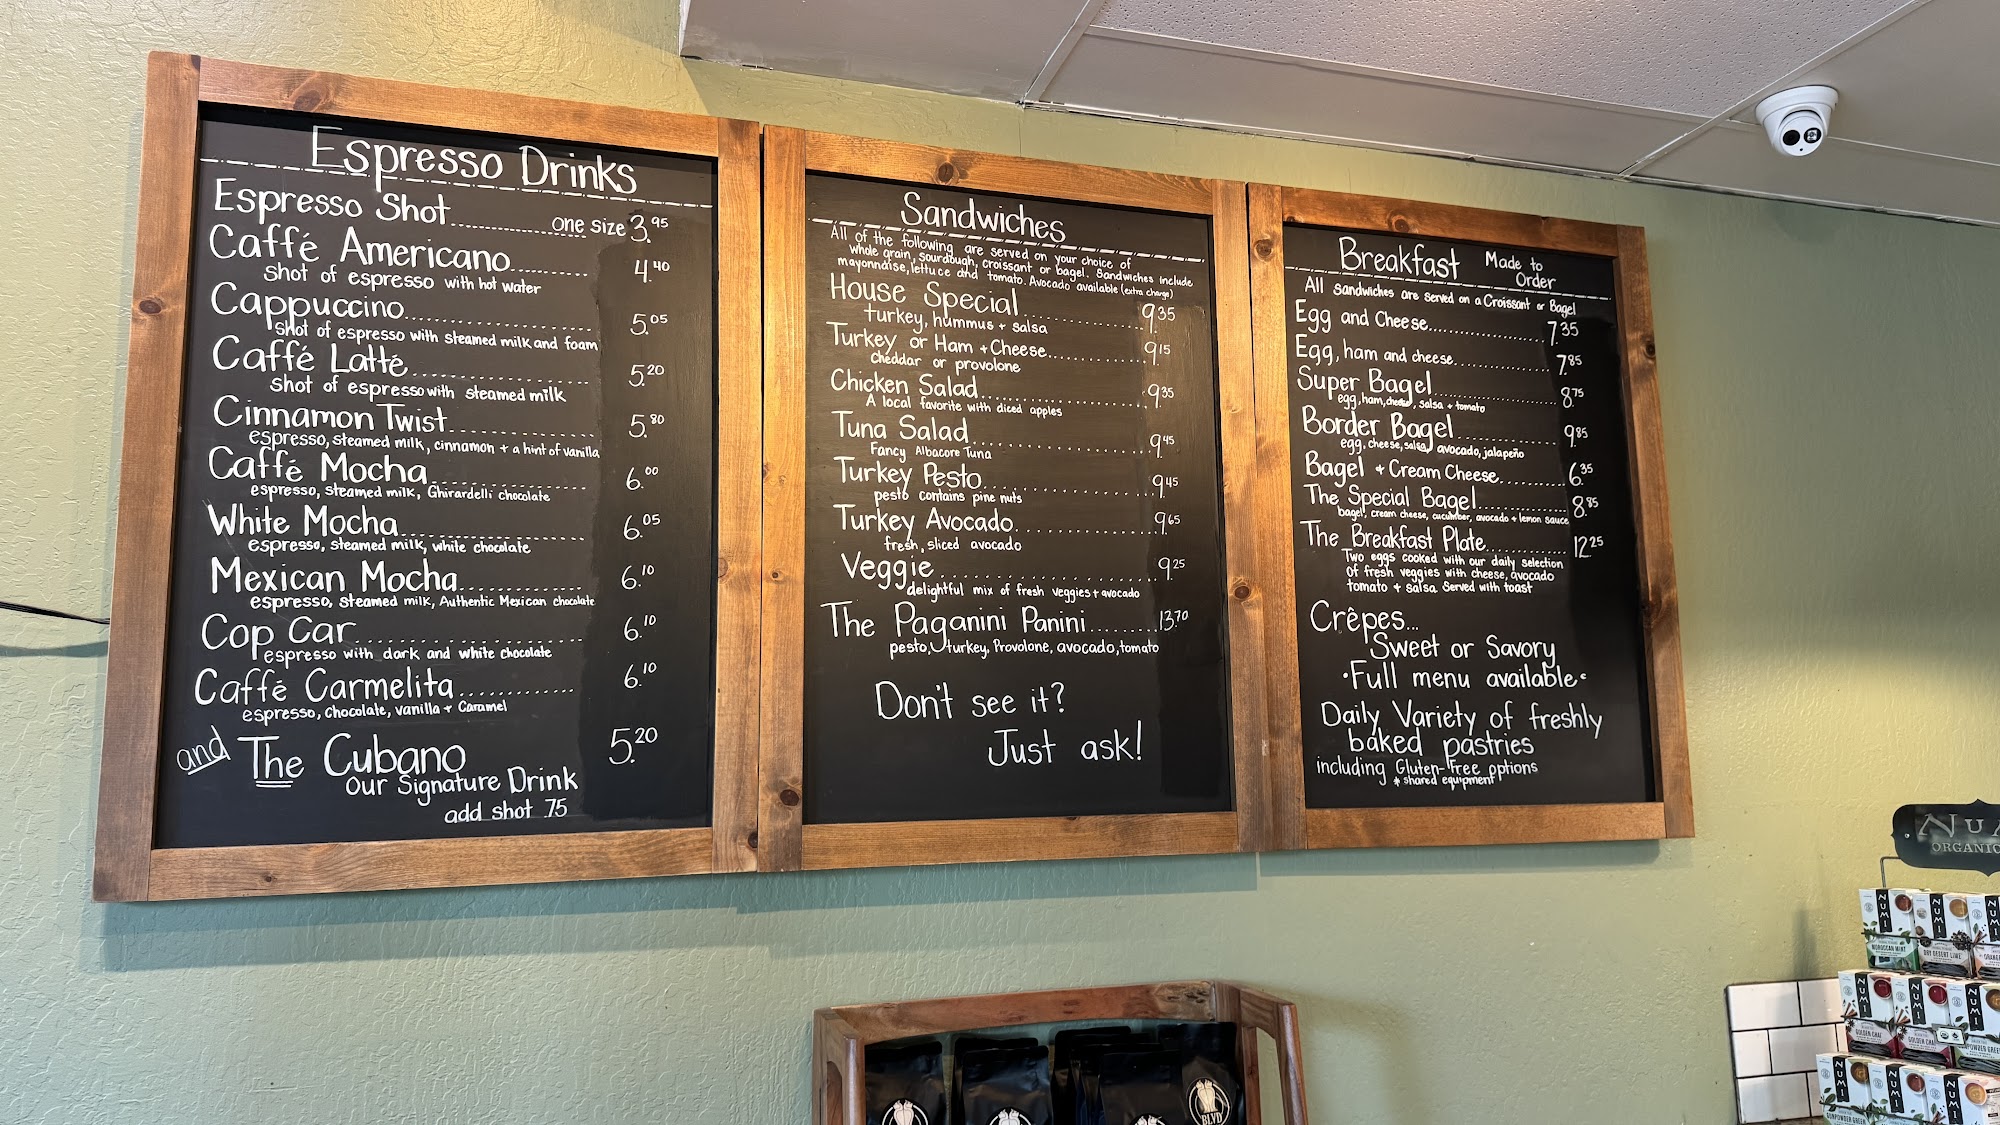 Espresso Drinks
Espresso Shot one size 3.95
Caffé Americano 4.40
shot of espresso with hot water
Cappuccino 5.05
shot of espresso with steamed milk and foam
Caffé Latté 5.20
shot of espresso with steamed milk
Cinnamon Twist 5.80
espresso, steamed milk, cinnamon + a hint of vanilla
Caffé Mocha 6.00
espresso, steamed milk, Ghirardelli chocolate
White Mocha 6.05
espresso, steamed milk, white chocolate
Mexican Mocha 6.10
espresso, steamed milk, Authentic Mexican chocolate
Cop Car 6.10
espresso with dark and white chocolate
Caffé Carmelita 6.10
espresso, chocolate, vanilla + Caramel
and The Cubano 5.20
our Signature Drink
add shot .75
Sandwiches
All of the following are served on your choice of
whole grain, sourdough, croissant or bagel. Sandwiches include
mayonnaise, lettuce and tomato. Avocado available (extra charge)
House Special 9.35
turkey, hummus + salsa
Turkey or Ham + Cheese 9.15
cheddar or provolone
Chicken Salad 9.35
A local favorite with diced apples
Tuna Salad 9.45
Fancy Albacore Tuna
Turkey Pesto 9.45
pesto contains pine nuts
Turkey Avocado 9.65
fresh, sliced avocado
Veggie 9.25
delightful mix of fresh veggies + avocado
The Paganini Panini 13.70
pesto, turkey, Provolone, avocado, tomato
Don't see it?
Just ask!
Breakfast Made to
Order
All sandwiches are served on a Croissant or Bagel
Egg and Cheese 7.35
Egg, ham and cheese 7.85
Super Bagel 8.75
egg, ham, cheese, salsa + tomato
Border Bagel 9.85
egg, cheese, salsa, avocado, jalapeño
Bagel + Cream Cheese 6.35
The Special Bagel 8.85
bagel, cream cheese, cucumber, avocado + lemon sauce
The Breakfast Plate 12.25
Two eggs cooked with our daily selection
of fresh veggies with cheese, avocado
tomato + salsa. Served with toast
Crêpes...
Sweet or Savory
• Full menu available •
Daily Variety of freshly
baked pastries
including Gluten-Free options
* shared equipment
ORGANIC
NUMI NUMI NUMI
MOROCCAN MINT DRY DESERT LIME
NUMI NUMI NUMI
GOLDEN CHAI GOLDEN CHAI GUNPOWDER GREEN
NUMI NUMI NUMI
GUNPOWDER GREEN
BLVD